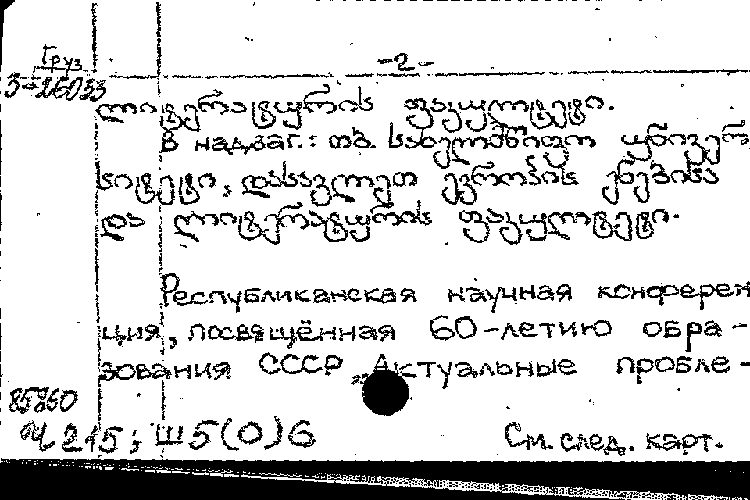 Груз
-2-
3-26033
ლიტერატურის ფაკულტეტი.
В надзаг.: თბ. სახელმწიფო უნივერ
სიტეტი, დასავლეთ ევროპის ენების
და ლიტერატურის ფაკულტეტი.
Республиканская научная конферен
ция, посвящённая 60-летию обра-
зования СССР „Актуальные пробле-
85860
Ч215; Ш5(0)6
См. след. карт.